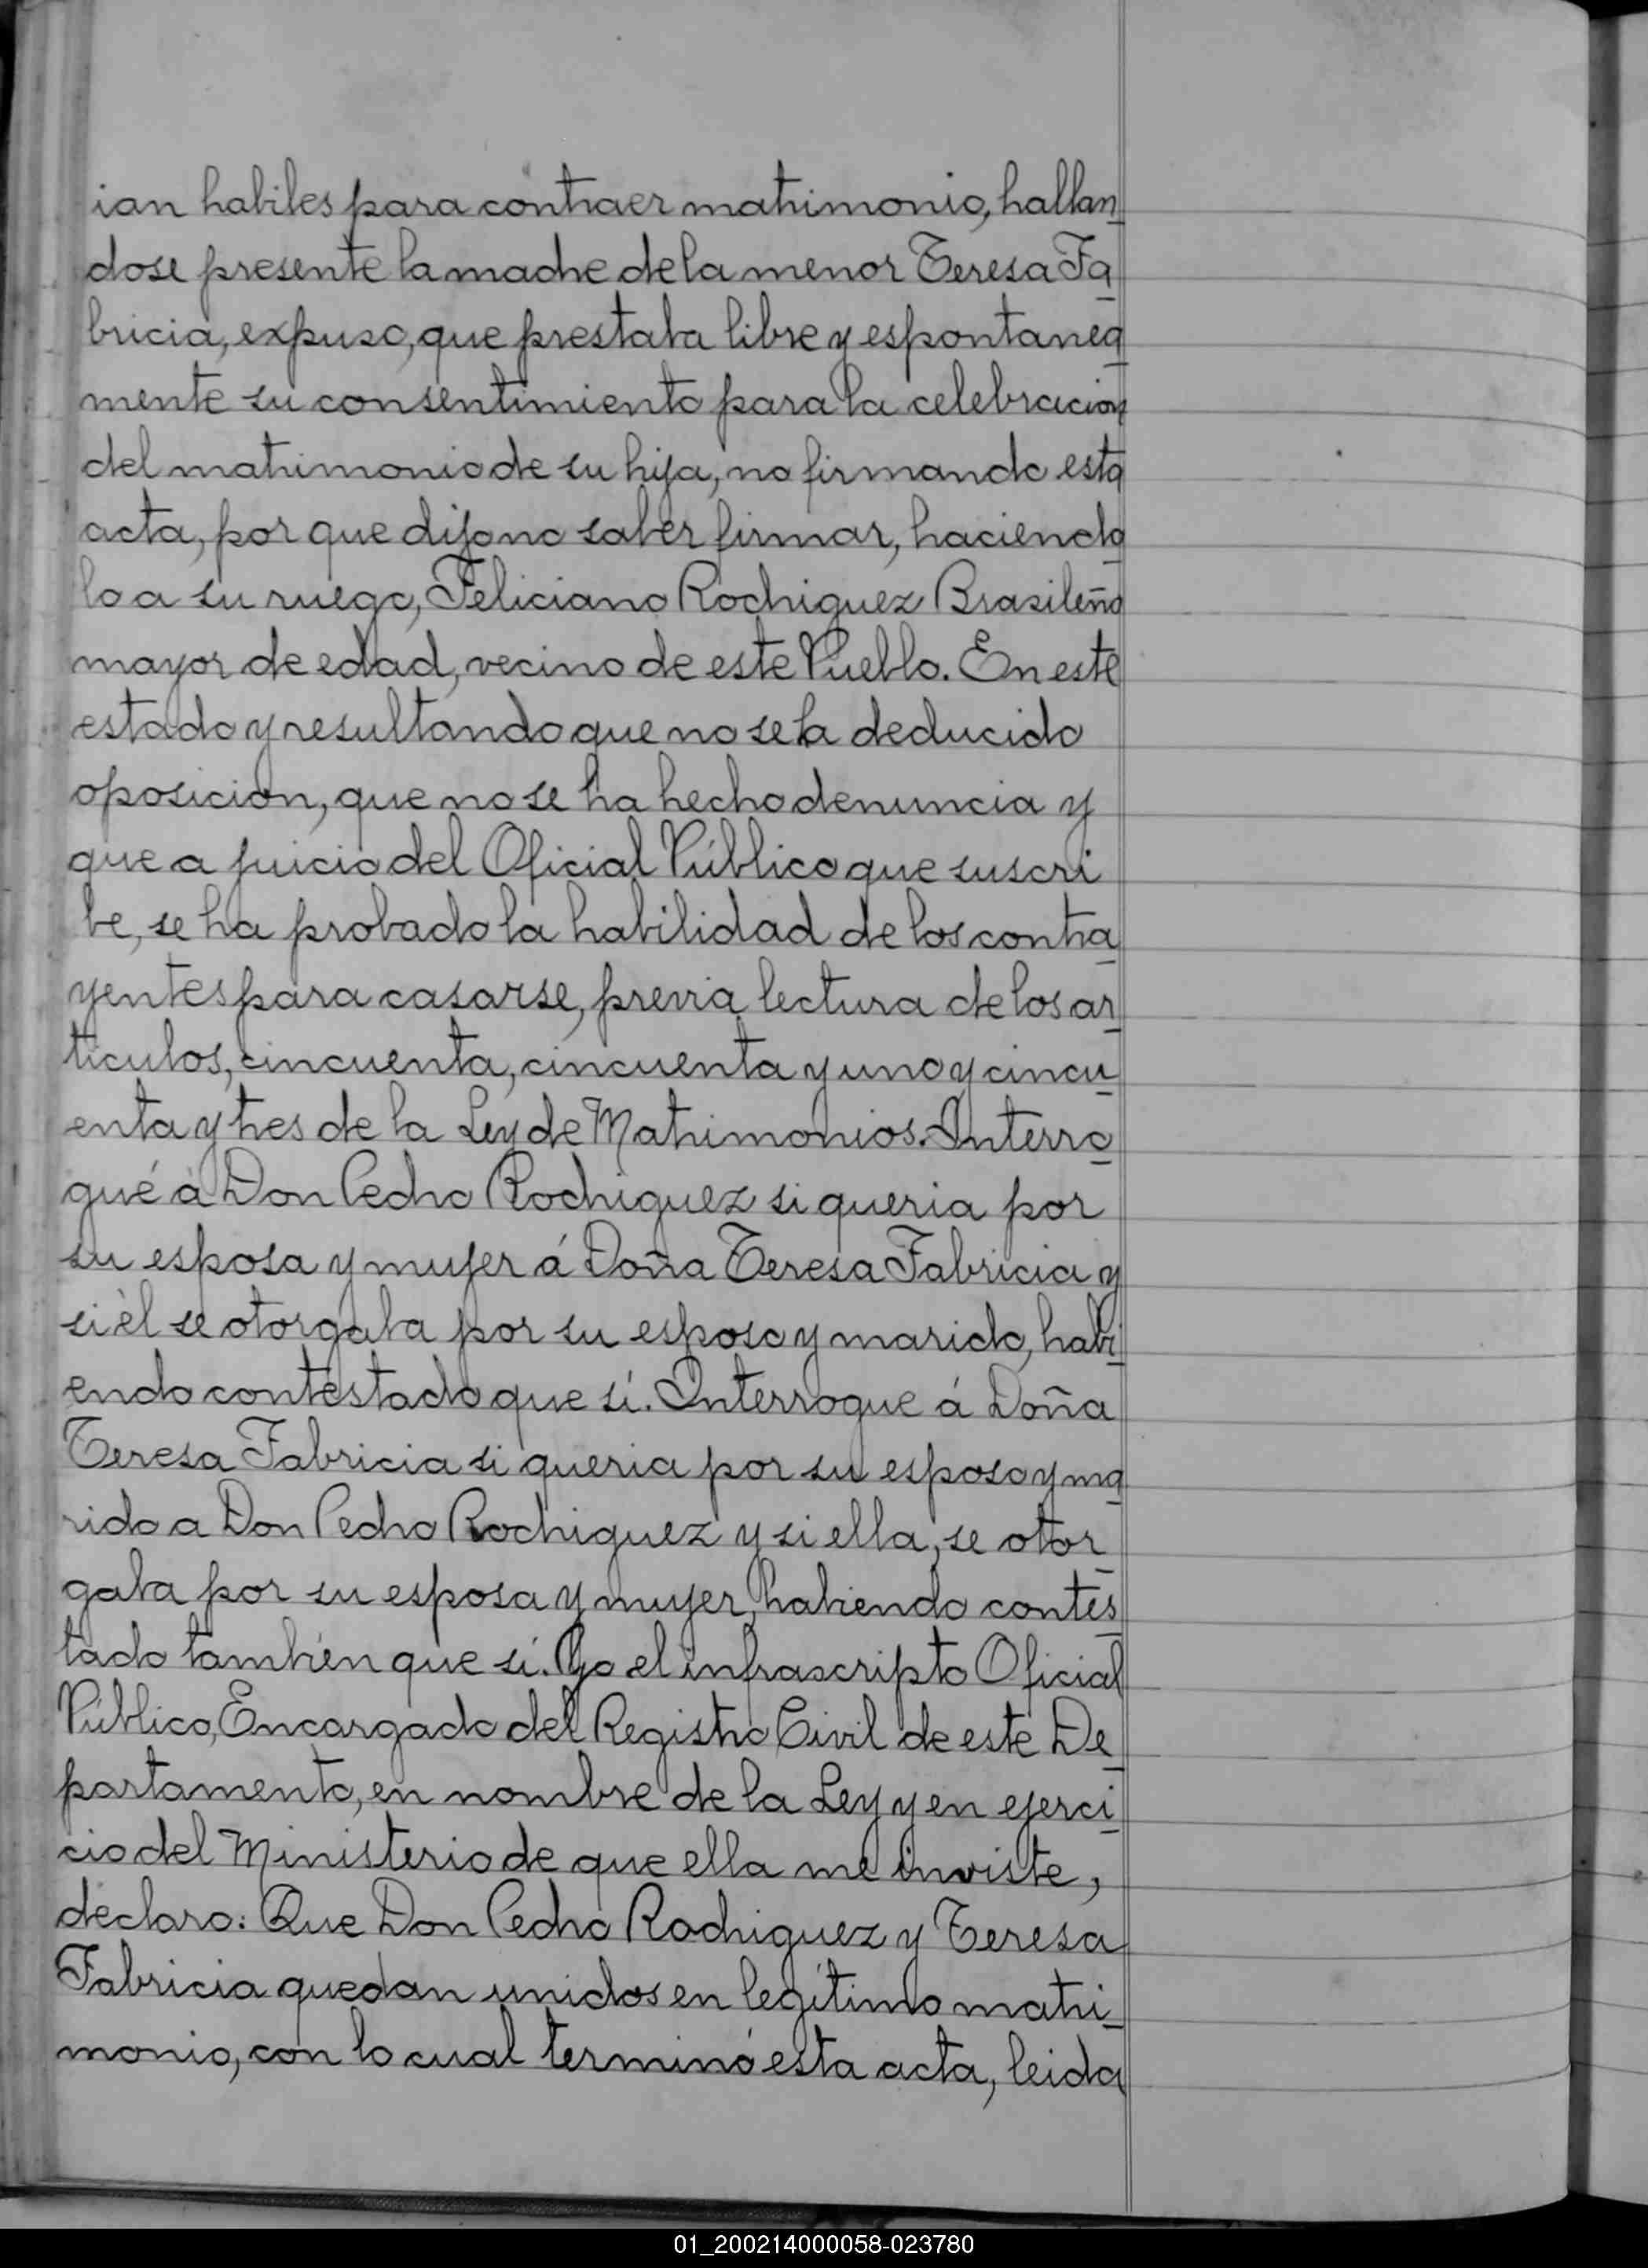 ian habiles para contraer matrimonio, hallan
dose presente la madre de la menor Teresa Fa
bricia, expuso, que prestaba libre y espontanea
mente su consentimiento para la celebracion
del matrimonio de su hija, no firmando esta
acta, por que dijo no saber firmar, haciendo
lo a su ruego, Feliciano Rodriguez Brasileño
mayor de edad, vecino de este Pueblo. En este
estado y resultando que no se ha deducido
oposicion, que no se ha hecho denuncia y
que a juicio del Oficial Público que suscri
be, se ha probado la habilidad de los contra
yentes para casarse, previa lectura de los ar
ticulos, cincuenta, cincuenta y uno y cincu
enta y tres de la Ley de Matrimonios. Interro
gué à Don Pedro Rodriguez si queria por
su esposa y mujer á Doña Teresa Fabricia y
si èl se otorgaba por su esposo y marido, habi
endo contestado que sí. Interrogue á Doña
Teresa Fabricia si queria por su esposo y ma
rido a Don Pedro Rodriguez y si ella, se otor
gaba por su esposa y mujer, habiendo contes
tado también que sí. Yo el infrascripto Oficial
Público, Encargado del Registro Civil de este De
partamento, en nombre de la Ley y en ejerci
cio del Ministerio de que ella me inviste,
declaro: Que Don Pedro Rodriguez y Teresa
Fabricia quedan unidos en legítimo matri
monio, con lo cual terminó esta acta, leida
01_200214000058-023780